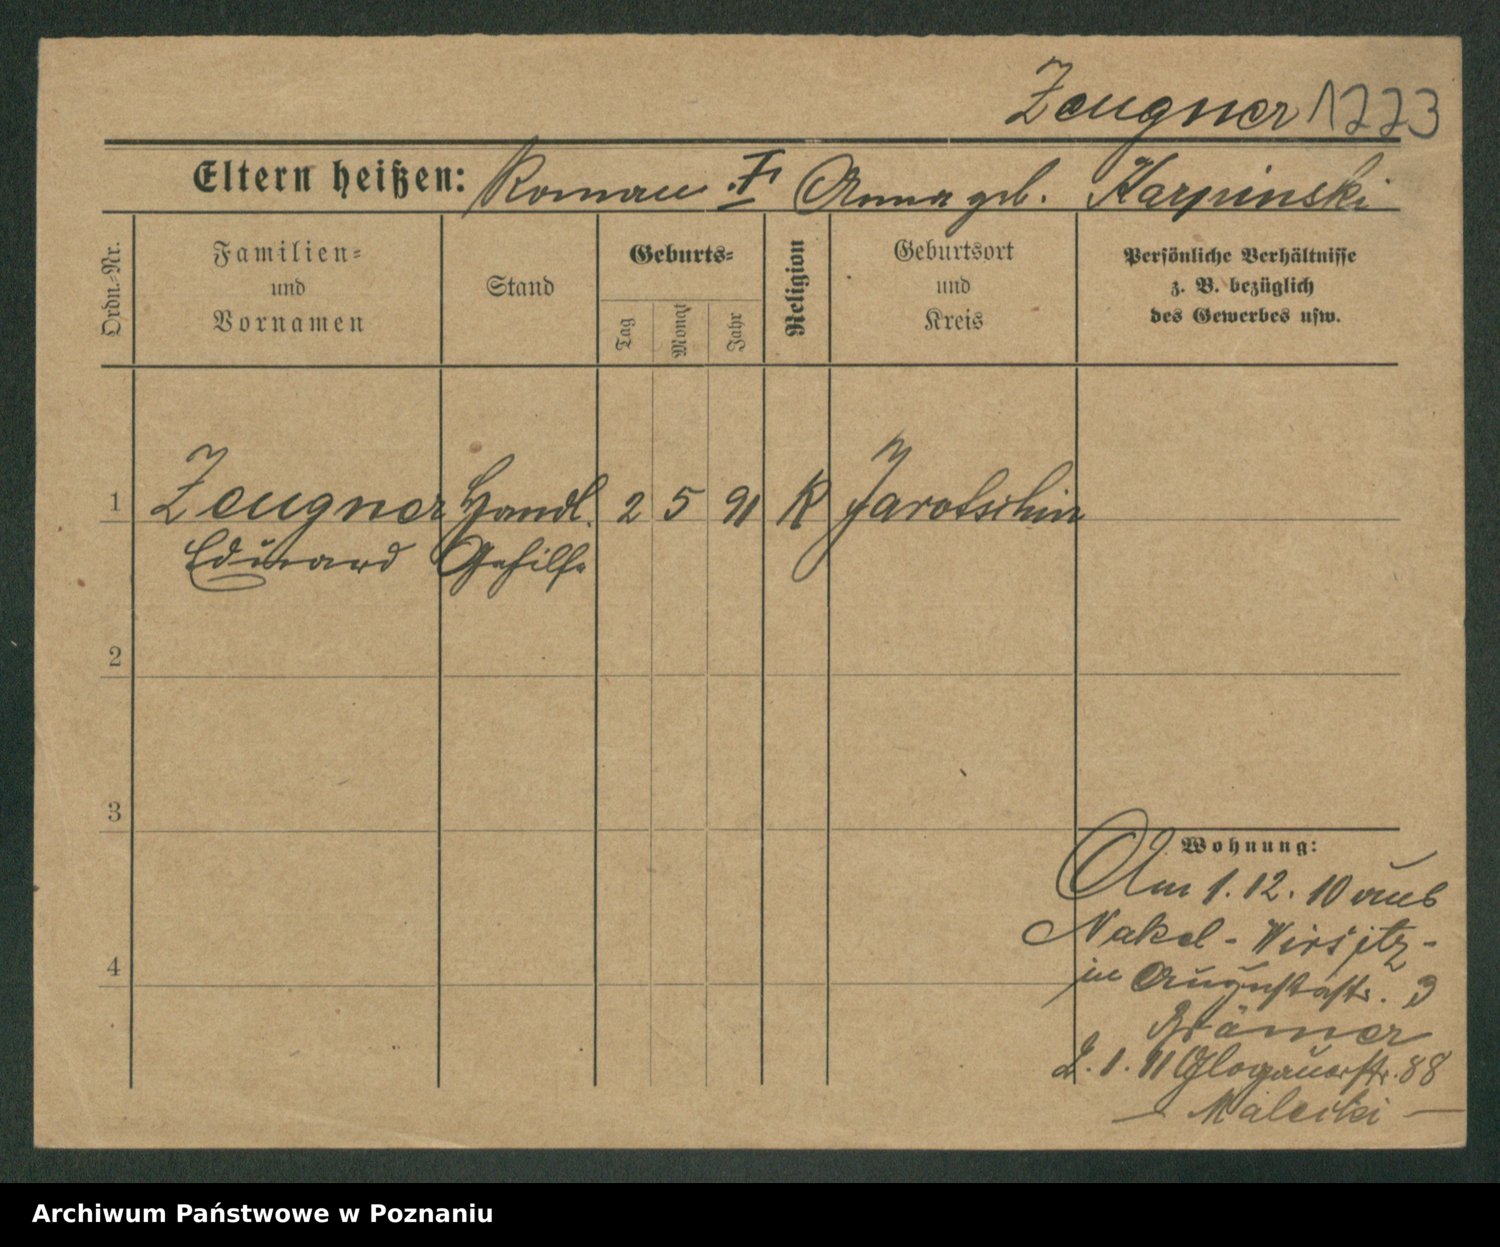 Zeugner 1223
Eltern heißen: Roman † Anna geb. Karpinski
Ordn.-Nr.
Familien-
und
Vornamen
Stand
Geburts-
Tag
Monat
Jahr
Religion
Geburtsort
und
Kreis
Persönliche Verhältnisse
z. B. bezüglich
des Gewerbes usw.
1 Zeugner Handl. 2 5 91 K Jarotschin
Eduard Gehilfe
2
3
4
Wohnung:
Am 1. 12. 10 aus
Nakel - Wirsitz -
in Augustastr. 3
Krämer
2. 1. 11 Glogauerstr. 88
- Malecki -
Archiwum Państwowe w Poznaniu